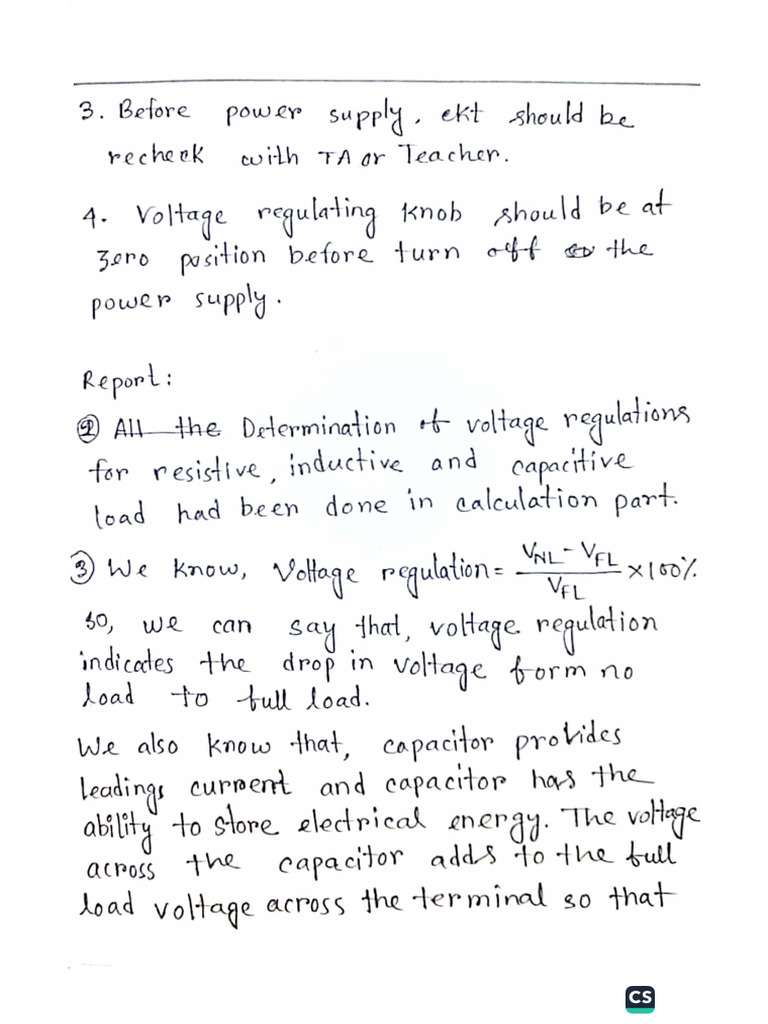 3. Before power supply, ckt should be
recheck with TA or Teacher.
4. Voltage regulating knob should be at
zero position before turn off the
power supply.
Report:
② All the Determination of voltage regulations
for resistive, inductive and capacitive
load had been done in calculation part.
③ We know, Voltage regulation = (V_NL - V_FL)/V_FL × 100%
so, we can say that, voltage regulation
indicates the drop in voltage form no
load to full load.
We also know that, capacitor provides
leadings current and capacitor has the
ability to store electrical energy. The voltage
across the capacitor adds to the full
load voltage across the terminal so that
CS